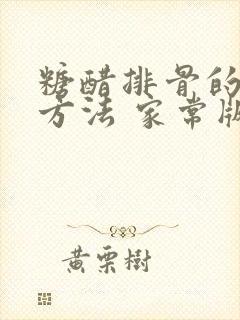 糖醋排骨的
方法 家常版
黄栗樹